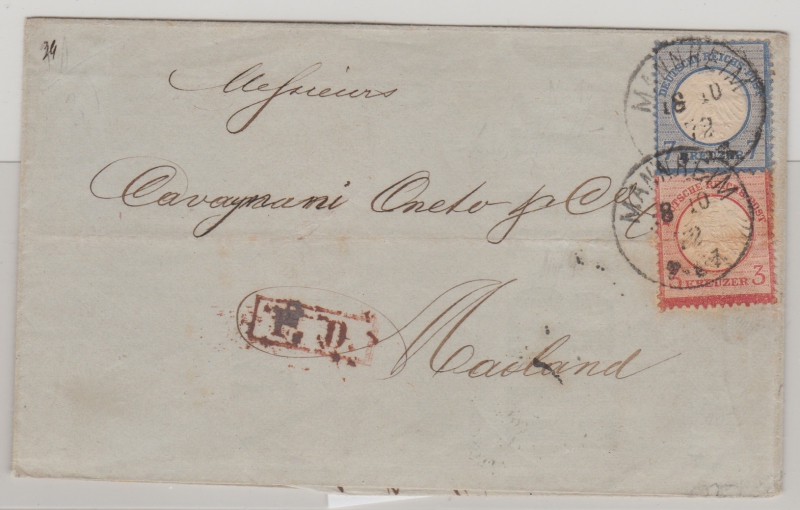 24
Messieurs
Cavagnani Oneto & Co
P. D.
Mailand
MANNHEIM
18 10
72
DEUTSCHE REICHS-POST
7 7
KREUZER
MANNHEIM
18 10
72
DEUTSCHE REICHS-POST
3
KREUZER